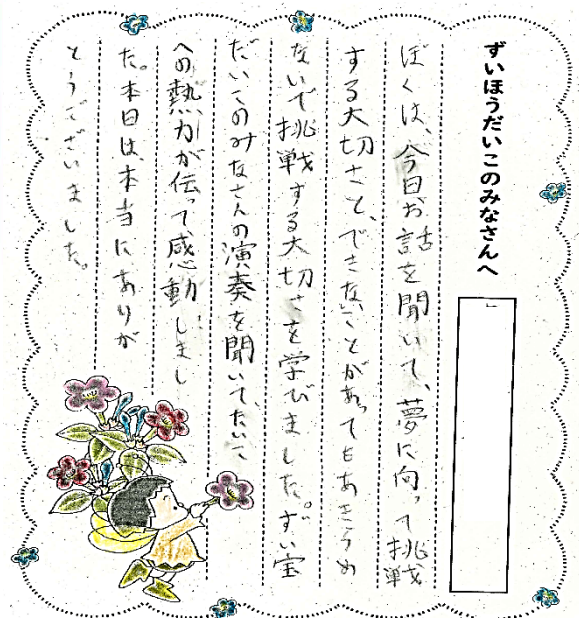 ずいほうだいこのみなさんへ
ぼくは、今日お話を聞いて、夢に向って挑戦
する大切さと、できないことがあってもあきらめ
ないで挑戦する大切さを学びました。ずい宝
だいこのみなさんの演奏を聞いて、たいこ
への熱力が伝って感動しまし
た。本日は、本当にありが
とうございました。